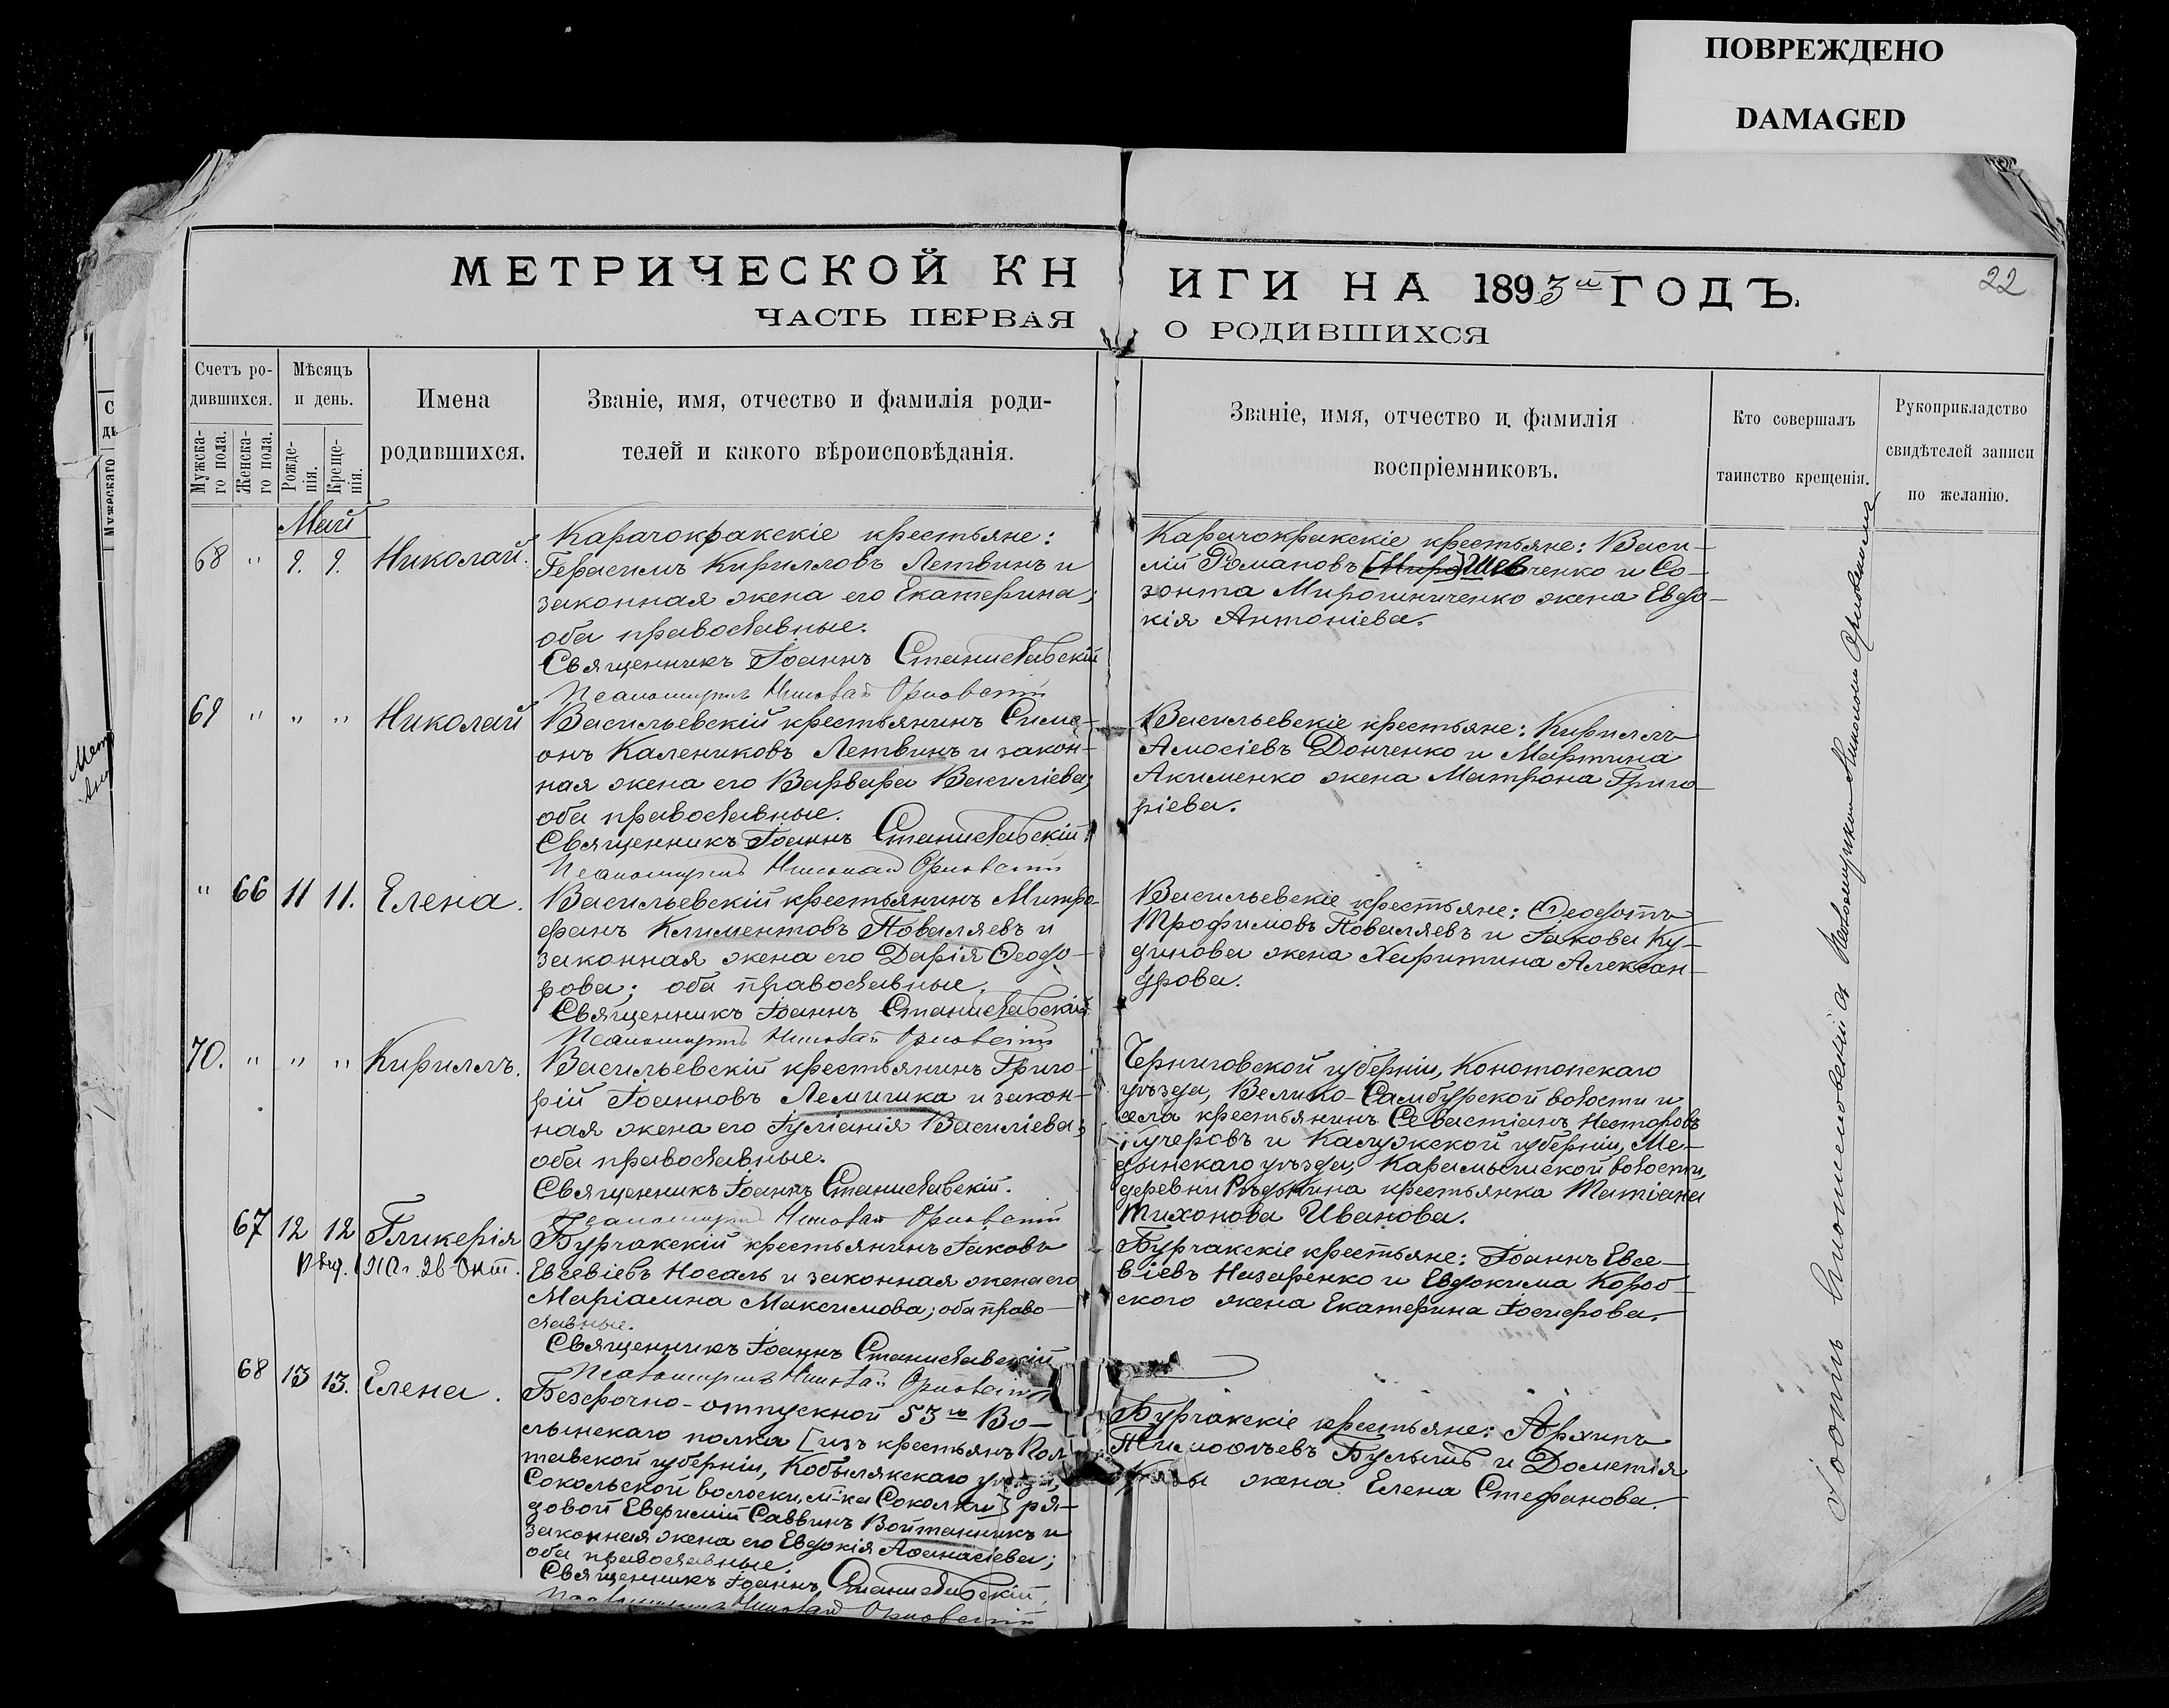 ПОВРЕЖДЕНО
DAMAGED
МЕТРИЧЕСКОЙ КНИГИ НА 1893й ГОДЪ.
22
ЧАСТЬ ПЕРВАЯ О РОДИВШИХСЯ
Счетъ ро-
дившихся.
Мужска-
го пола.
Женска-
го пола.
Мѣсяцъ
и день.
Рожде-
нія.
Креще-
нія.
Имена
родившихся.
Званіе, имя, отчество и фамилія роди-
телей и какого вѣроисповѣданія.
Званіе, имя, отчество и фамилія
воспріемниковъ.
Кто совершалъ
таинство крещенія.
Рукоприкладство
свидѣтелей записи
по желанію.
Май
68 " 9. 9. Николай.
Карачокракскіе крестьяне:
Герасимъ Кирилловъ Летвинъ и
законная жена его Екатерина;
оба православные.
Священникъ Іоаннъ Станиславскій
Псаломщикъ Николай Орловскій
Карачокракскіе крестьяне: Васи-
лій Романовъ [Миро] Шевченко и Со-
зонта Мирошниченко жена Евдо-
кія Антоніева.
69 " " " Николай
Васильевскій крестьянинъ Симе-
онъ Калениковъ Летвинъ и закон-
ная жена его Варвара Василіева;
оба православные.
Священникъ Іоаннъ Станиславскій
Псаломщикъ Николай Орловскій
Васильевскіе крестьяне: Кириллъ
Амосіевъ Донченко и Мартина
Акименко жена Матрона Григо-
ріева.
" 66 11 11. Елена.
Васильевскій крестьянинъ Митро-
фанъ Климентовъ Поваляевъ и
законная жена его Дарія Ѳеодо-
рова; оба православные.
Священникъ Іоаннъ Станиславскій
Псаломщикъ Николай Орловскій
Васильевскіе крестьяне: Ѳеодотъ
Трофимовъ Поваляевъ и Іакова Ку-
динова жена Харитина Алексан-
дрова.
70. " " " Кириллъ.
Васильевскій крестьянинъ Григо-
рій Іоанновъ Лемишка и закон-
ная жена его Іуліанія Василіева;
оба православные.
Священникъ Іоаннъ Станиславскій.
Псаломщикъ Николай Орловскій
Черниговской губерніи, Конотопскаго
уѣзда, Велико-Самбурской волости и
села крестьянинъ Севастіанъ Несторовъ
Кучеровъ и Калужской губерніи, Ме-
дынскаго уѣзда, Карамышской волости,
деревни Рѣдькина крестьянка Татіана
Тихонова Иванова.
67 12 12 Гликерія
Выд. 1910 г. 26 Окт.
Бурчакскій крестьянинъ Іаковъ
Евсевіевъ Носаль и законная жена его
Маріамна Максимова; оба право-
славные.
Священникъ Іоаннъ Станиславскій
Псаломщикъ Николай Орловскій
Бурчакскіе крестьяне: Іоаннъ Евсе-
віевъ Назаренко и Евдокима Короб-
ского жена Екатерина Іосифова.
68 13 13. Елена.
Безсрочно-отпускной 53го Во-
лынскаго полка [изъ крестьянъ Пол-
тавской губерніи, Кобылякскаго уѣзда,
Сокольской волости, м-ка Соколки] ря-
довой Евфимій Саввинъ Войтанникъ и
законная жена его Евдокія Аѳанасіева;
оба православные.
Священникъ Іоаннъ Станиславскій.
Псаломщикъ Николай Орловскій
Бурчакскіе крестьяне: Архипъ
Тимоѳѣевъ Булышъ и Дометія
жена Елена Стефанова.
псаломщикомъ Николаемъ Орловскимъ